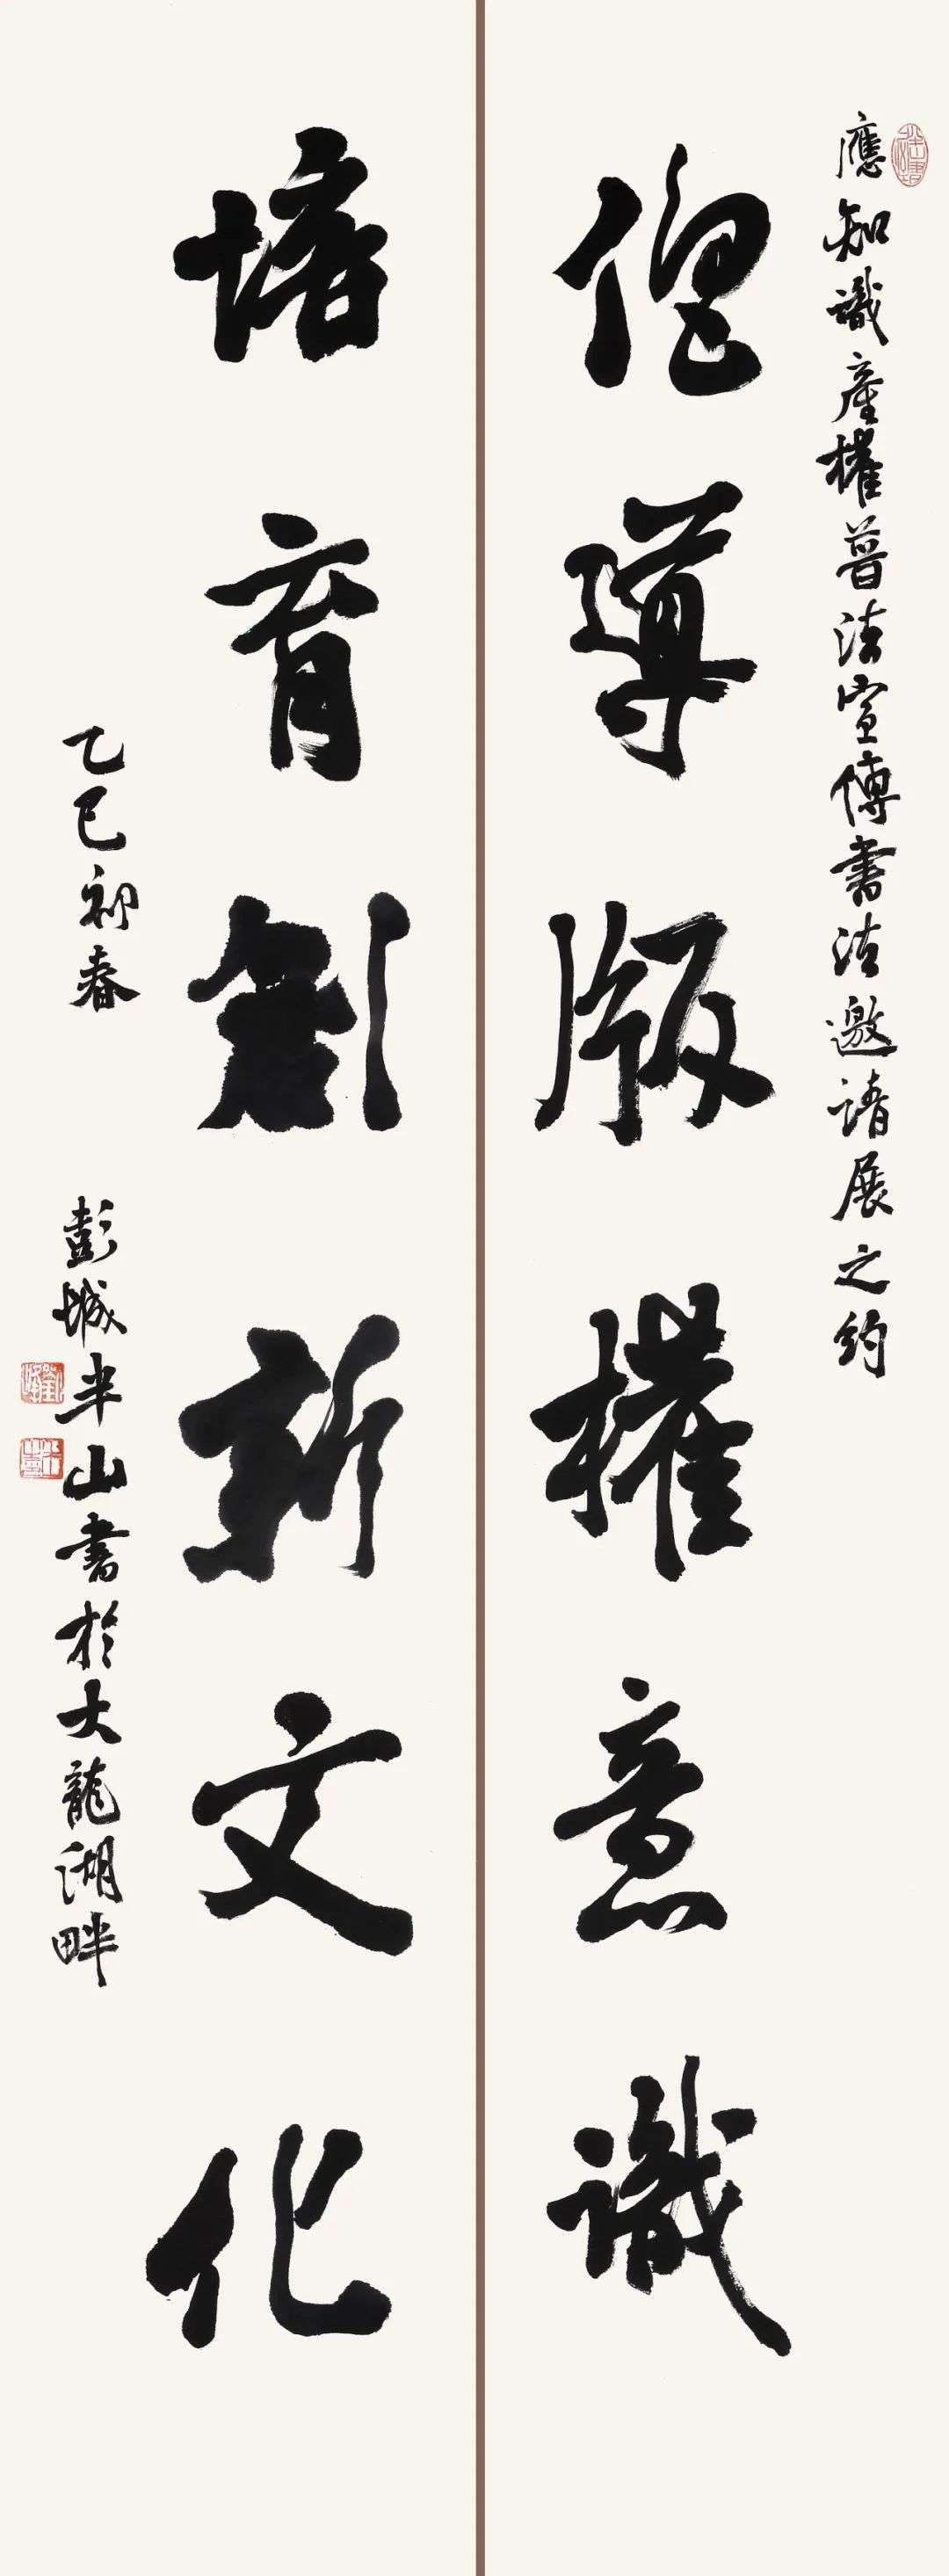 應知識產權普法宣傳書法邀請展之約
倡導版權意識
培育創新文化
乙巳初春 彭城半山書於大龍湖畔